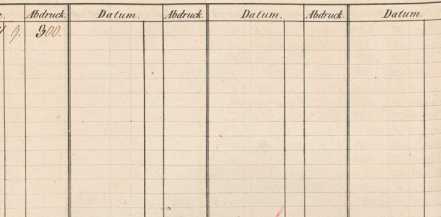 Abdruck. Datum. Abdruck. Datum. Abdruck. Datum.
9. 300.